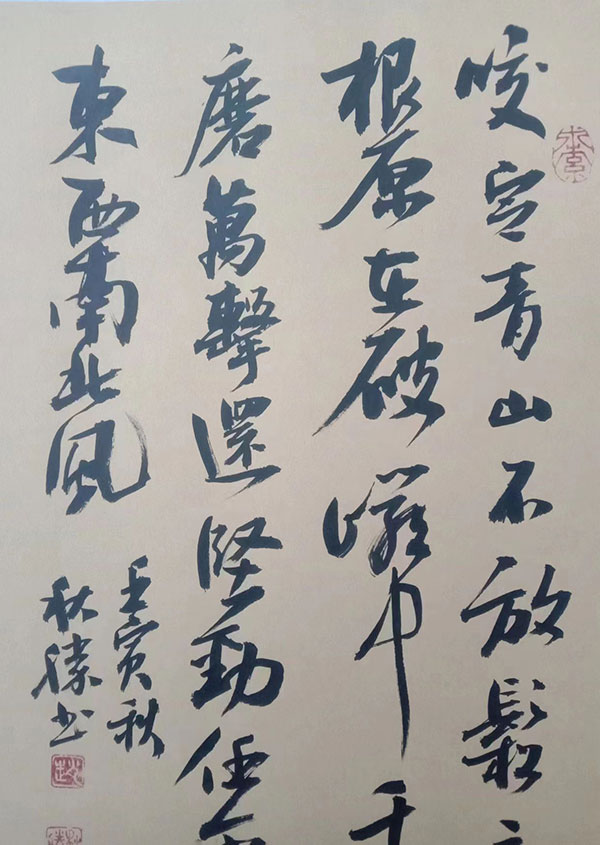 咬定青山不放鬆
根原在破巖中千
磨萬擊還堅勁任
東西南北風
壬寅秋
秋書